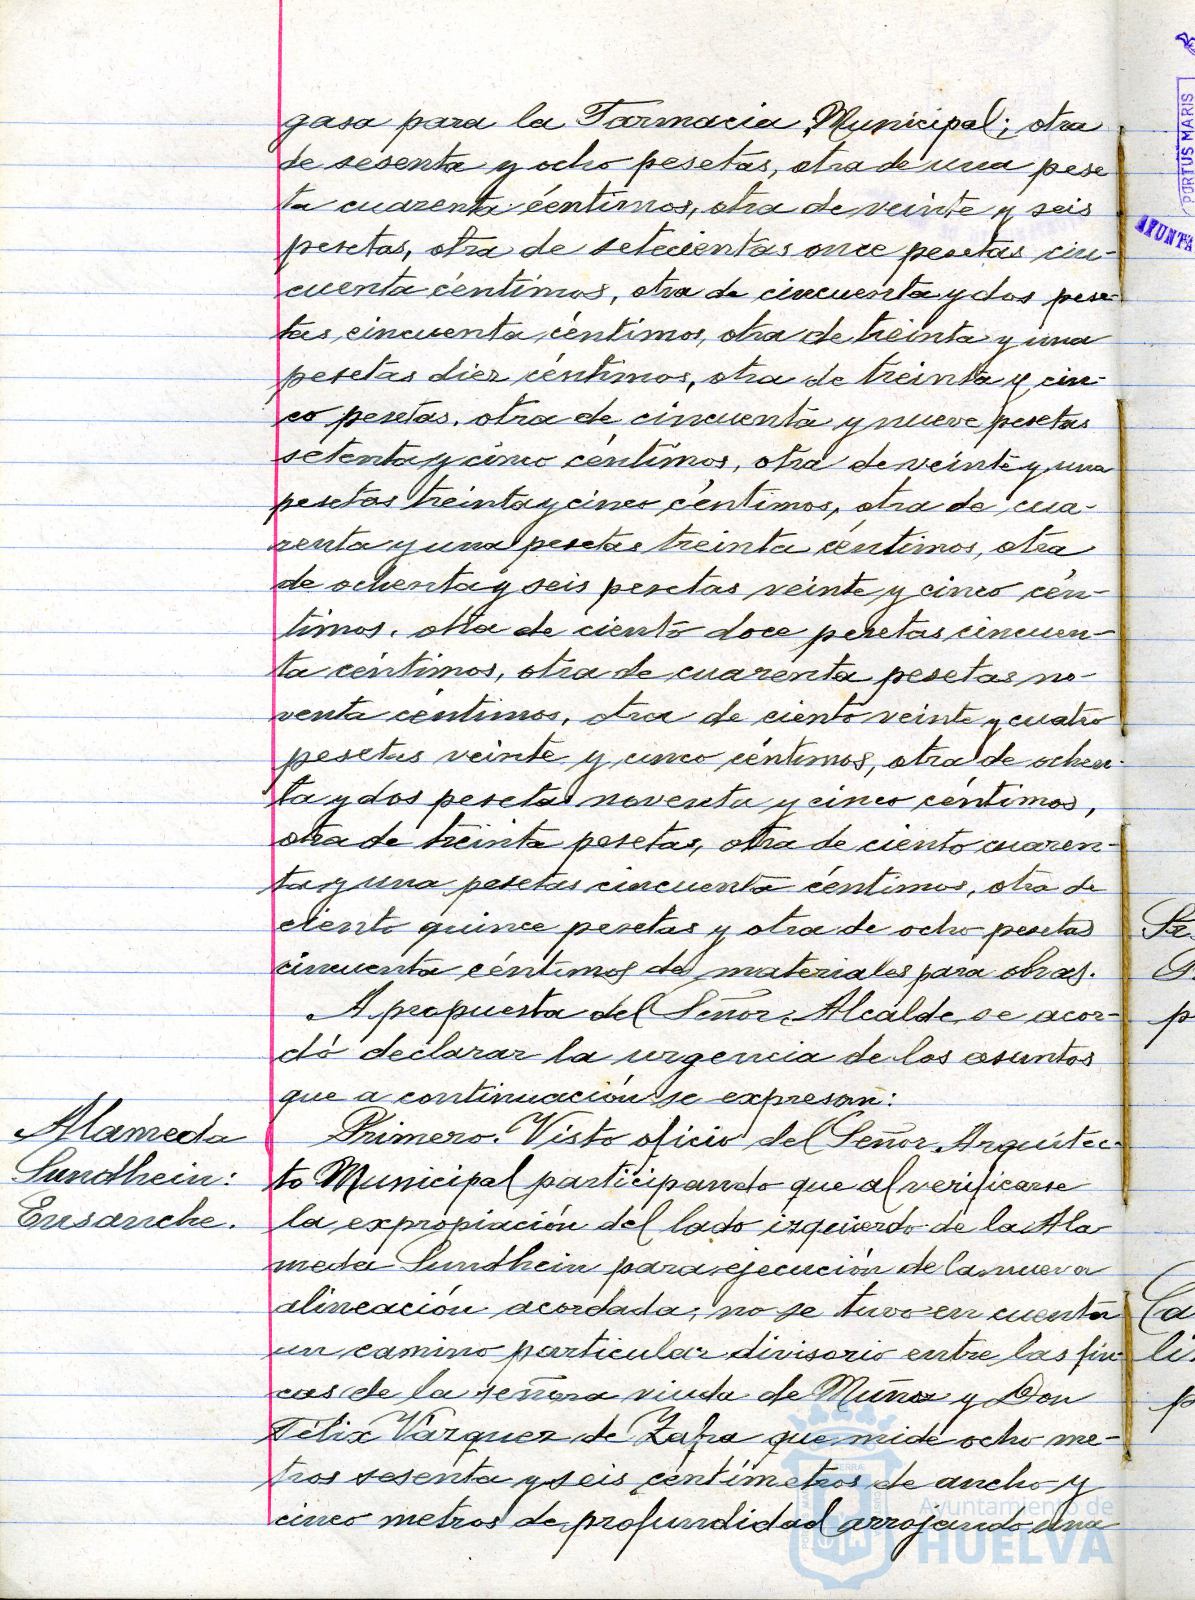 gasa para la Farmacia Municipal; otra
de sesenta y ocho pesetas, otra de una pese
ta cuarenta céntimos, otra de veinte y seis
pesetas, otra de setecientas once pesetas cin-
cuenta céntimos, otra de cincuenta y dos pese-
tas cincuenta céntimos, otra de treinta y una
pesetas diez céntimos, otra de treinta y cin-
co pesetas, otra de cincuenta y nueve pesetas
setenta y cinco céntimos, otra de veinte y una
pesetas treinta y cinco céntimos, otra de cua-
renta y una pesetas treinta céntimos, otra
de ochenta y seis pesetas veinte y cinco cén-
timos, otra de ciento doce pesetas cincuen-
ta céntimos, otra de cuarenta pesetas no-
venta céntimos, otra de ciento veinte y cuatro
pesetas veinte y cinco céntimos, otra de ochen-
ta y dos pesetas noventa y cinco céntimos,
otra de treinta pesetas, otra de ciento cuaren-
ta y una pesetas cincuenta céntimos, otra de
ciento quince pesetas y otra de ocho pesetas
cincuenta céntimos de materiales para obras.
A propuesta del Señor Alcalde se acor-
dó declarar la urgencia de los asuntos
que a continuación se expresan:
Alameda
Sundhein:
Ensanche.
Primero. Visto oficio del Señor Arquitec-
to Municipal participando que al verificarse
la expropiación del lado izquierdo de la Ala
meda Sundhein para ejecución de la nueva
alineación acordada, no se tuvo en cuenta
un camino particular divisorio entre las fin
cas de la señora viuda de Muñoz y Don
Félix Vázquez de Zafra que mide ocho me-
tros sesenta y seis centímetros de ancho y
cinco metros de profundidad arrojando una
Ayuntamiento de
HUELVA
PORTUS MARIS
AYUNTA